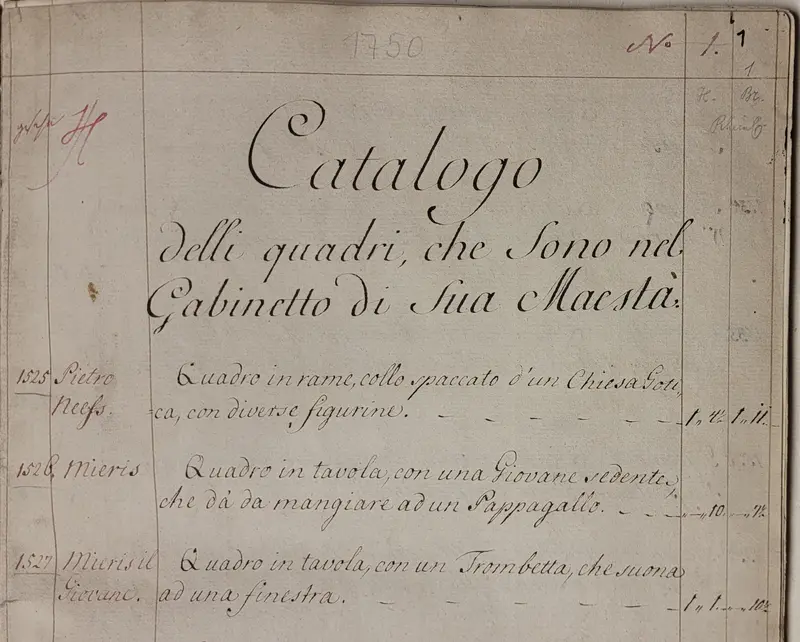 1750
No 1. 1
1
H. Br.
Catalogo
delli quadri, che Sono nel
Gabinetto di Sua Maestà.
1525 Pietro Quadro in rame, collo spaccato d'un Chiesa Goti-
Neefs. -ca, con diverse figurine. — — — — — 1„ 4½ 1„ 11.
1526. Mieris Quadro in tavola, con una Giovane sedente,
che dà da mangiare ad un Pappagallo. — — — „ 10. — „ 7½
1527 Mieris il Quadro in tavola, con un Trombetta, che suona
Giovane. ad una finestra. — — — — — — 1„ 1. — „ 10½